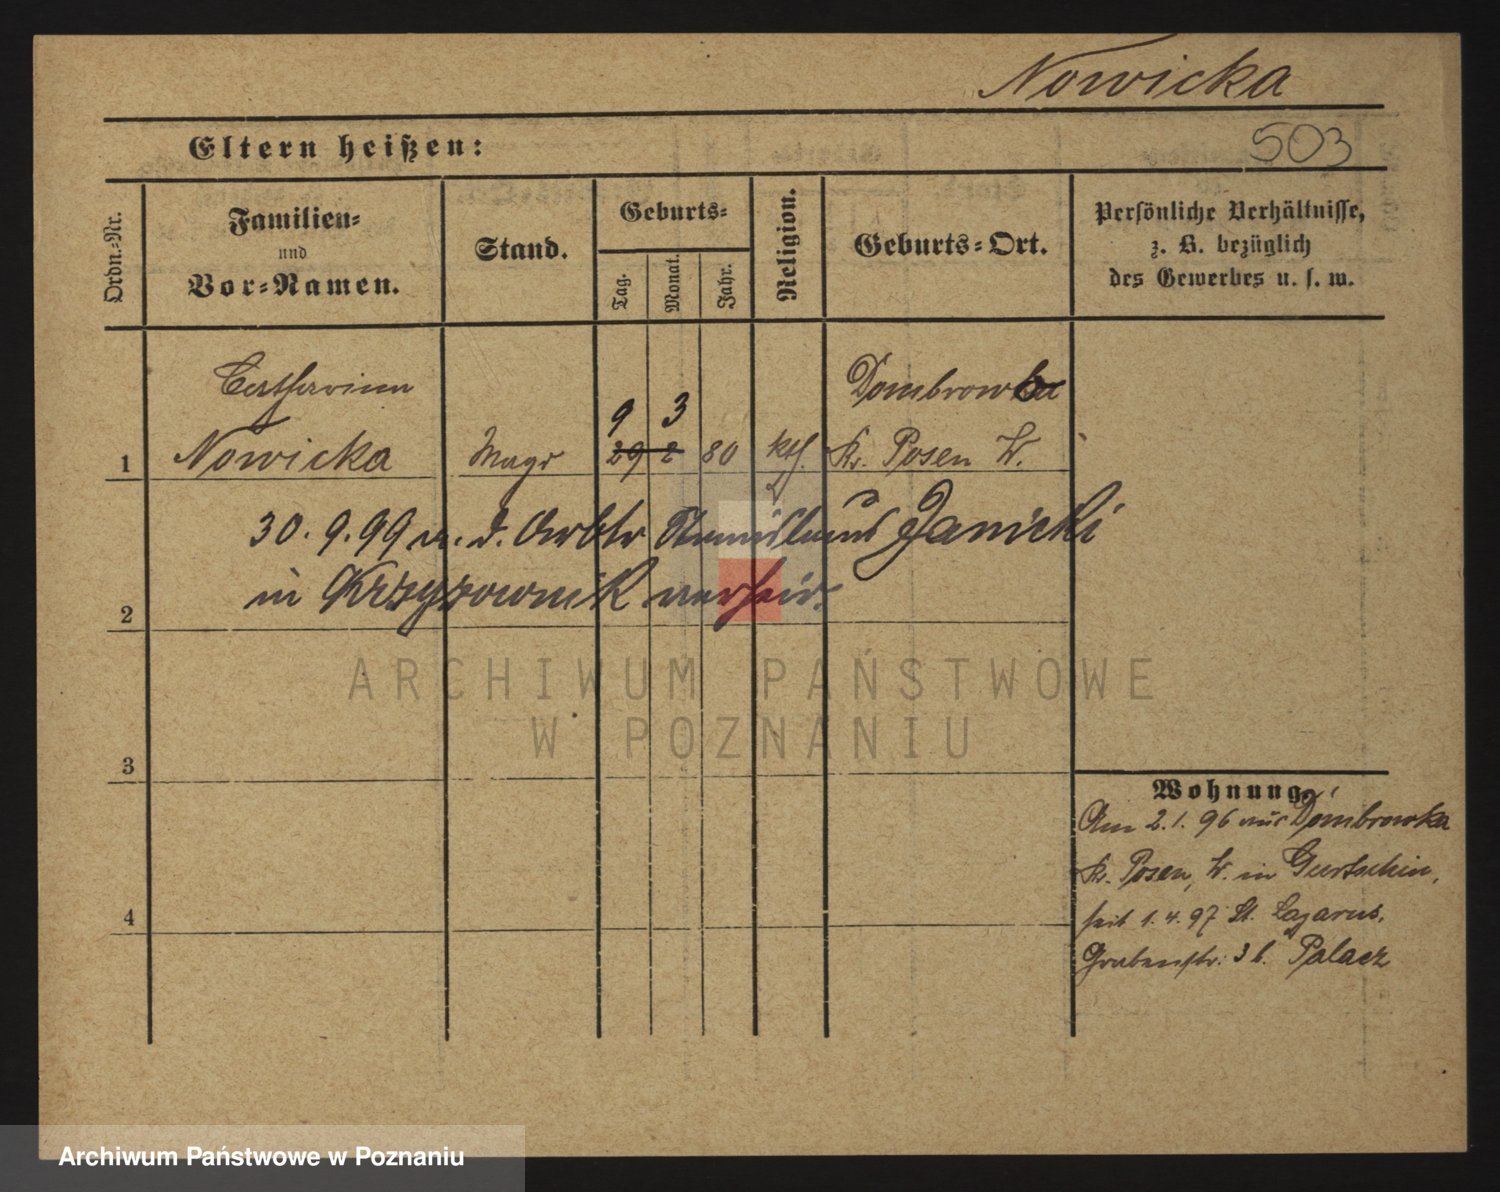 Nowicka
Eltern heißen:
503
Ordn.-Nr.
Familien-
und
Vor-Namen.
Stand.
Geburts-
Tag.
Monat.
Jahr.
Religion.
Geburts-Ort.
Persönliche Verhältnisse,
z. B. bezüglich
des Gewerbes u. s. w.
Catharina
Dombrowka
9 3
1 Nowicka Magd 29 2 80 kth. Kr. Posen W.
30. 9. 99 m. d. Arbtr Stanislaus Janicki
in Krzyzownik verheir.
2
3
4
ARCHIWUM PAŃSTWOWE
W POZNANIU
Wohnung.
Am 2.1. 96 aus Dombrowka
Kr. Posen, W. in Gurtschin,
seit 1.4.97 St. Lazarus,
Grabenstr. 3 b. Palacz
Archiwum Państwowe w Poznaniu